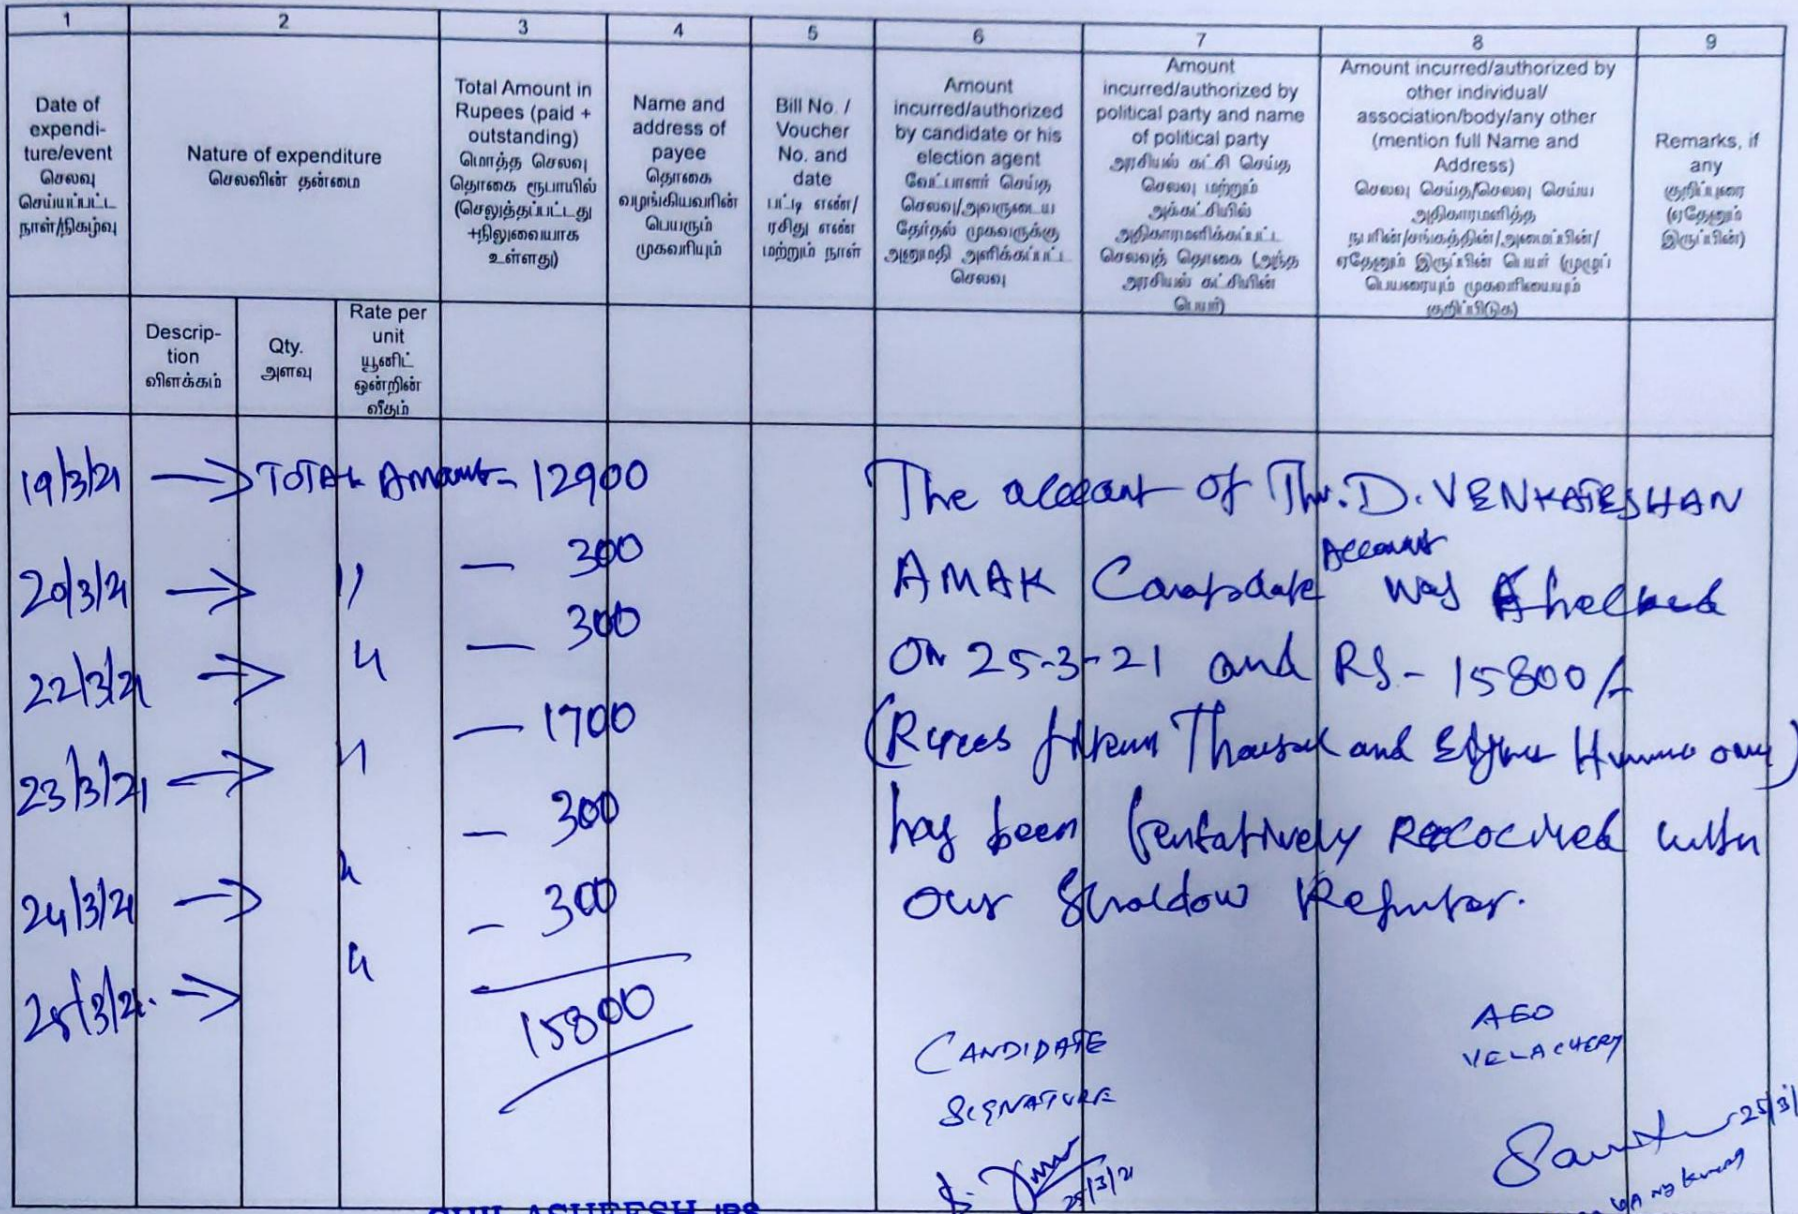 1 2 3 4 5 6 7 8 9
Date of
expendi-
ture/event
செலவு
செய்யப்பட்ட
நாள்/நிகழ்வு
Nature of expenditure
செலவின் தன்மை
Total Amount in
Rupees (paid +
outstanding)
மொத்த செலவு
தொகை ரூபாயில்
(செலுத்தப்பட்டது
+நிலுவையாக
உள்ளது)
Name and
address of
payee
தொகை
வழங்கியவரின்
பெயரும்
முகவரியும்
Bill No. /
Voucher
No. and
date
பட்டி எண்/
ரசிது எண்
மற்றும் நாள்
Amount
incurred/authorized
by candidate or his
election agent
வேட்பாளர் செய்த
செலவு/அவருடைய
தேர்தல் முகவருக்கு
அனுமதி அளிக்கப்பட்ட
செலவு
Amount
incurred/authorized by
political party and name
of political party
அரசியல் கட்சி செய்த
செலவு மற்றும்
அக்கட்சியில்
அதிகாரமளிக்கப்பட்ட
செலவுத் தொகை (அந்த
அரசியல் கட்சியின்
பெயர்)
Amount incurred/authorized by
other individual/
association/body/any other
(mention full Name and
Address)
செலவு செய்த/செலவு செய்ய
அதிகாரமளித்த
நபரின்/சங்கத்தின்/அமைப்பின்/
ஏதேனும் இருப்பின் பெயர் (முழுப்
பெயரையும் முகவரியையும்
குறிப்பிடுக)
Remarks, if
any
குறிப்புரை
(ஏதேனும்
இருப்பின்)
Descrip-
tion
விளக்கம்
Qty.
அளவு
Rate per
unit
யூனிட்
ஒன்றின்
வீதம்
19/3/21 → TOTAL Amount - 12900
20/3/21 → " - 300
22/3/21 → " - 300
23/3/21 → " - 1700
24/3/21 → " - 300
25/3/21. → " - 300
15800
The account of Thr. D. VENKATESHAN
AMAK Candidate Account was checked
on 25-3-21 and RS - 15800/-
(Rupees fifteen Thousand and Eight Hundred only)
has been tentatively Recociled with
our Shaldow Register.
CANDIDATE
SIGNATURE
25/3/21
AEO
VELACHERY
25/3/
ASHEESH, IRS